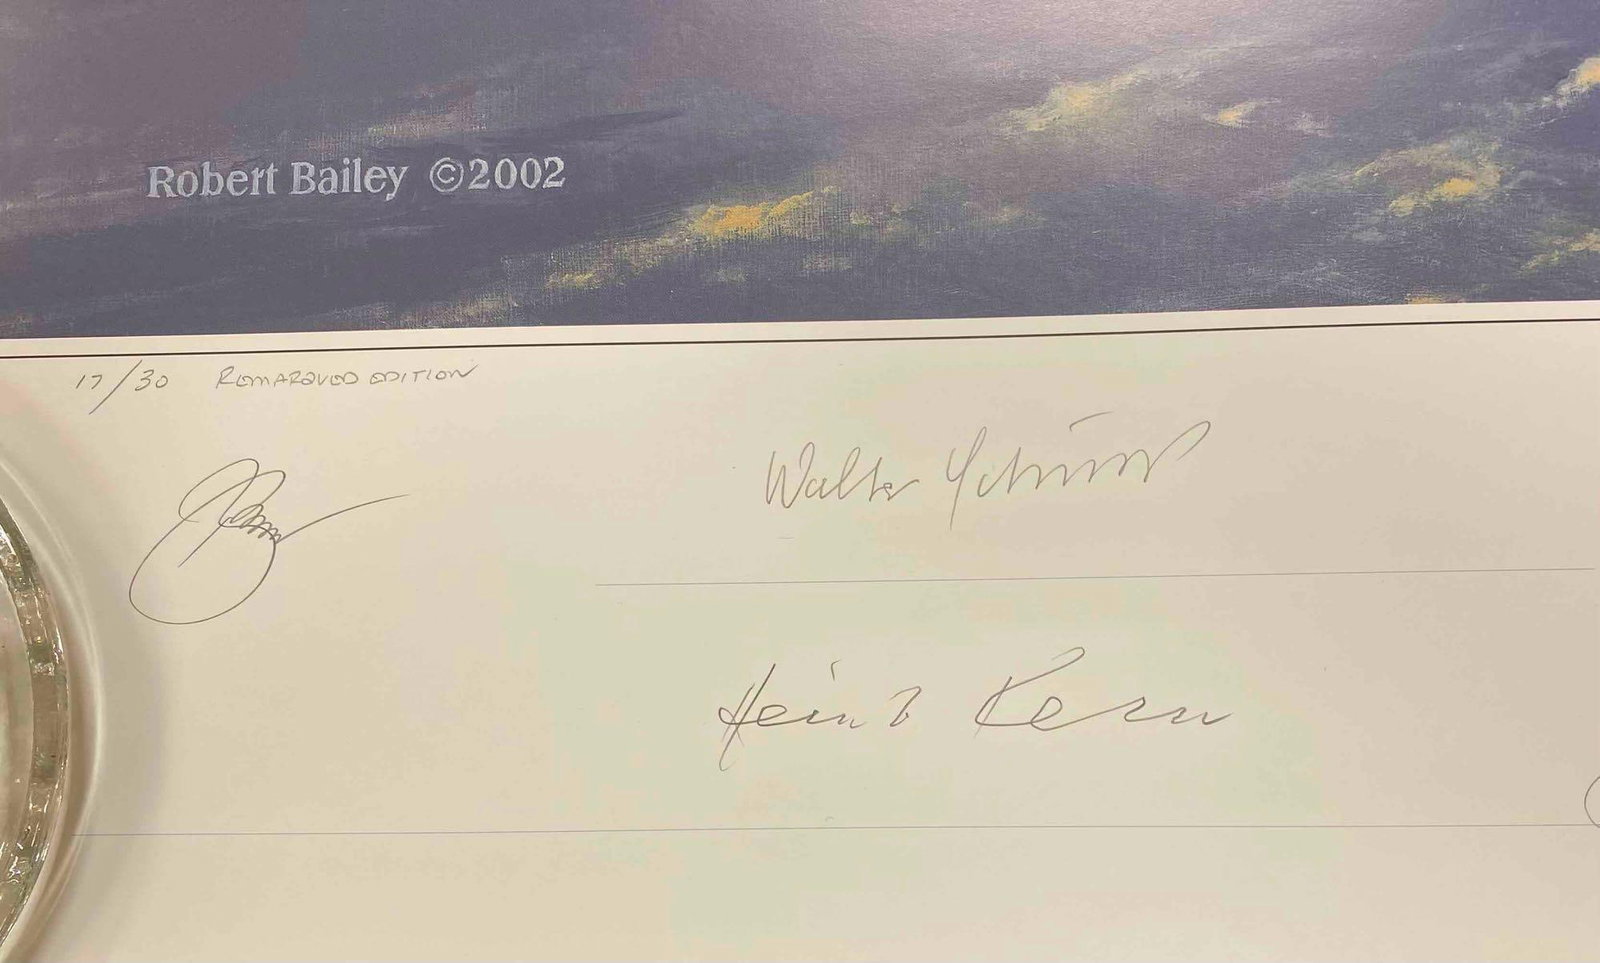 Robert Bailey ©2002
17/30 REMARQUED EDITION
Walter
Heinz Kern